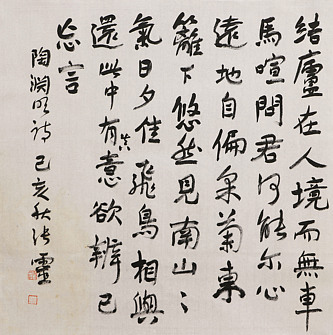 結廬在人境而無車
馬喧問君何能尔心
遠地自偏采菊東
籬下悠然見南山〻
氣日夕佳飛鳥相與
還此中有真意欲辨已
忘言
陶淵明詩 己亥秋 張靈